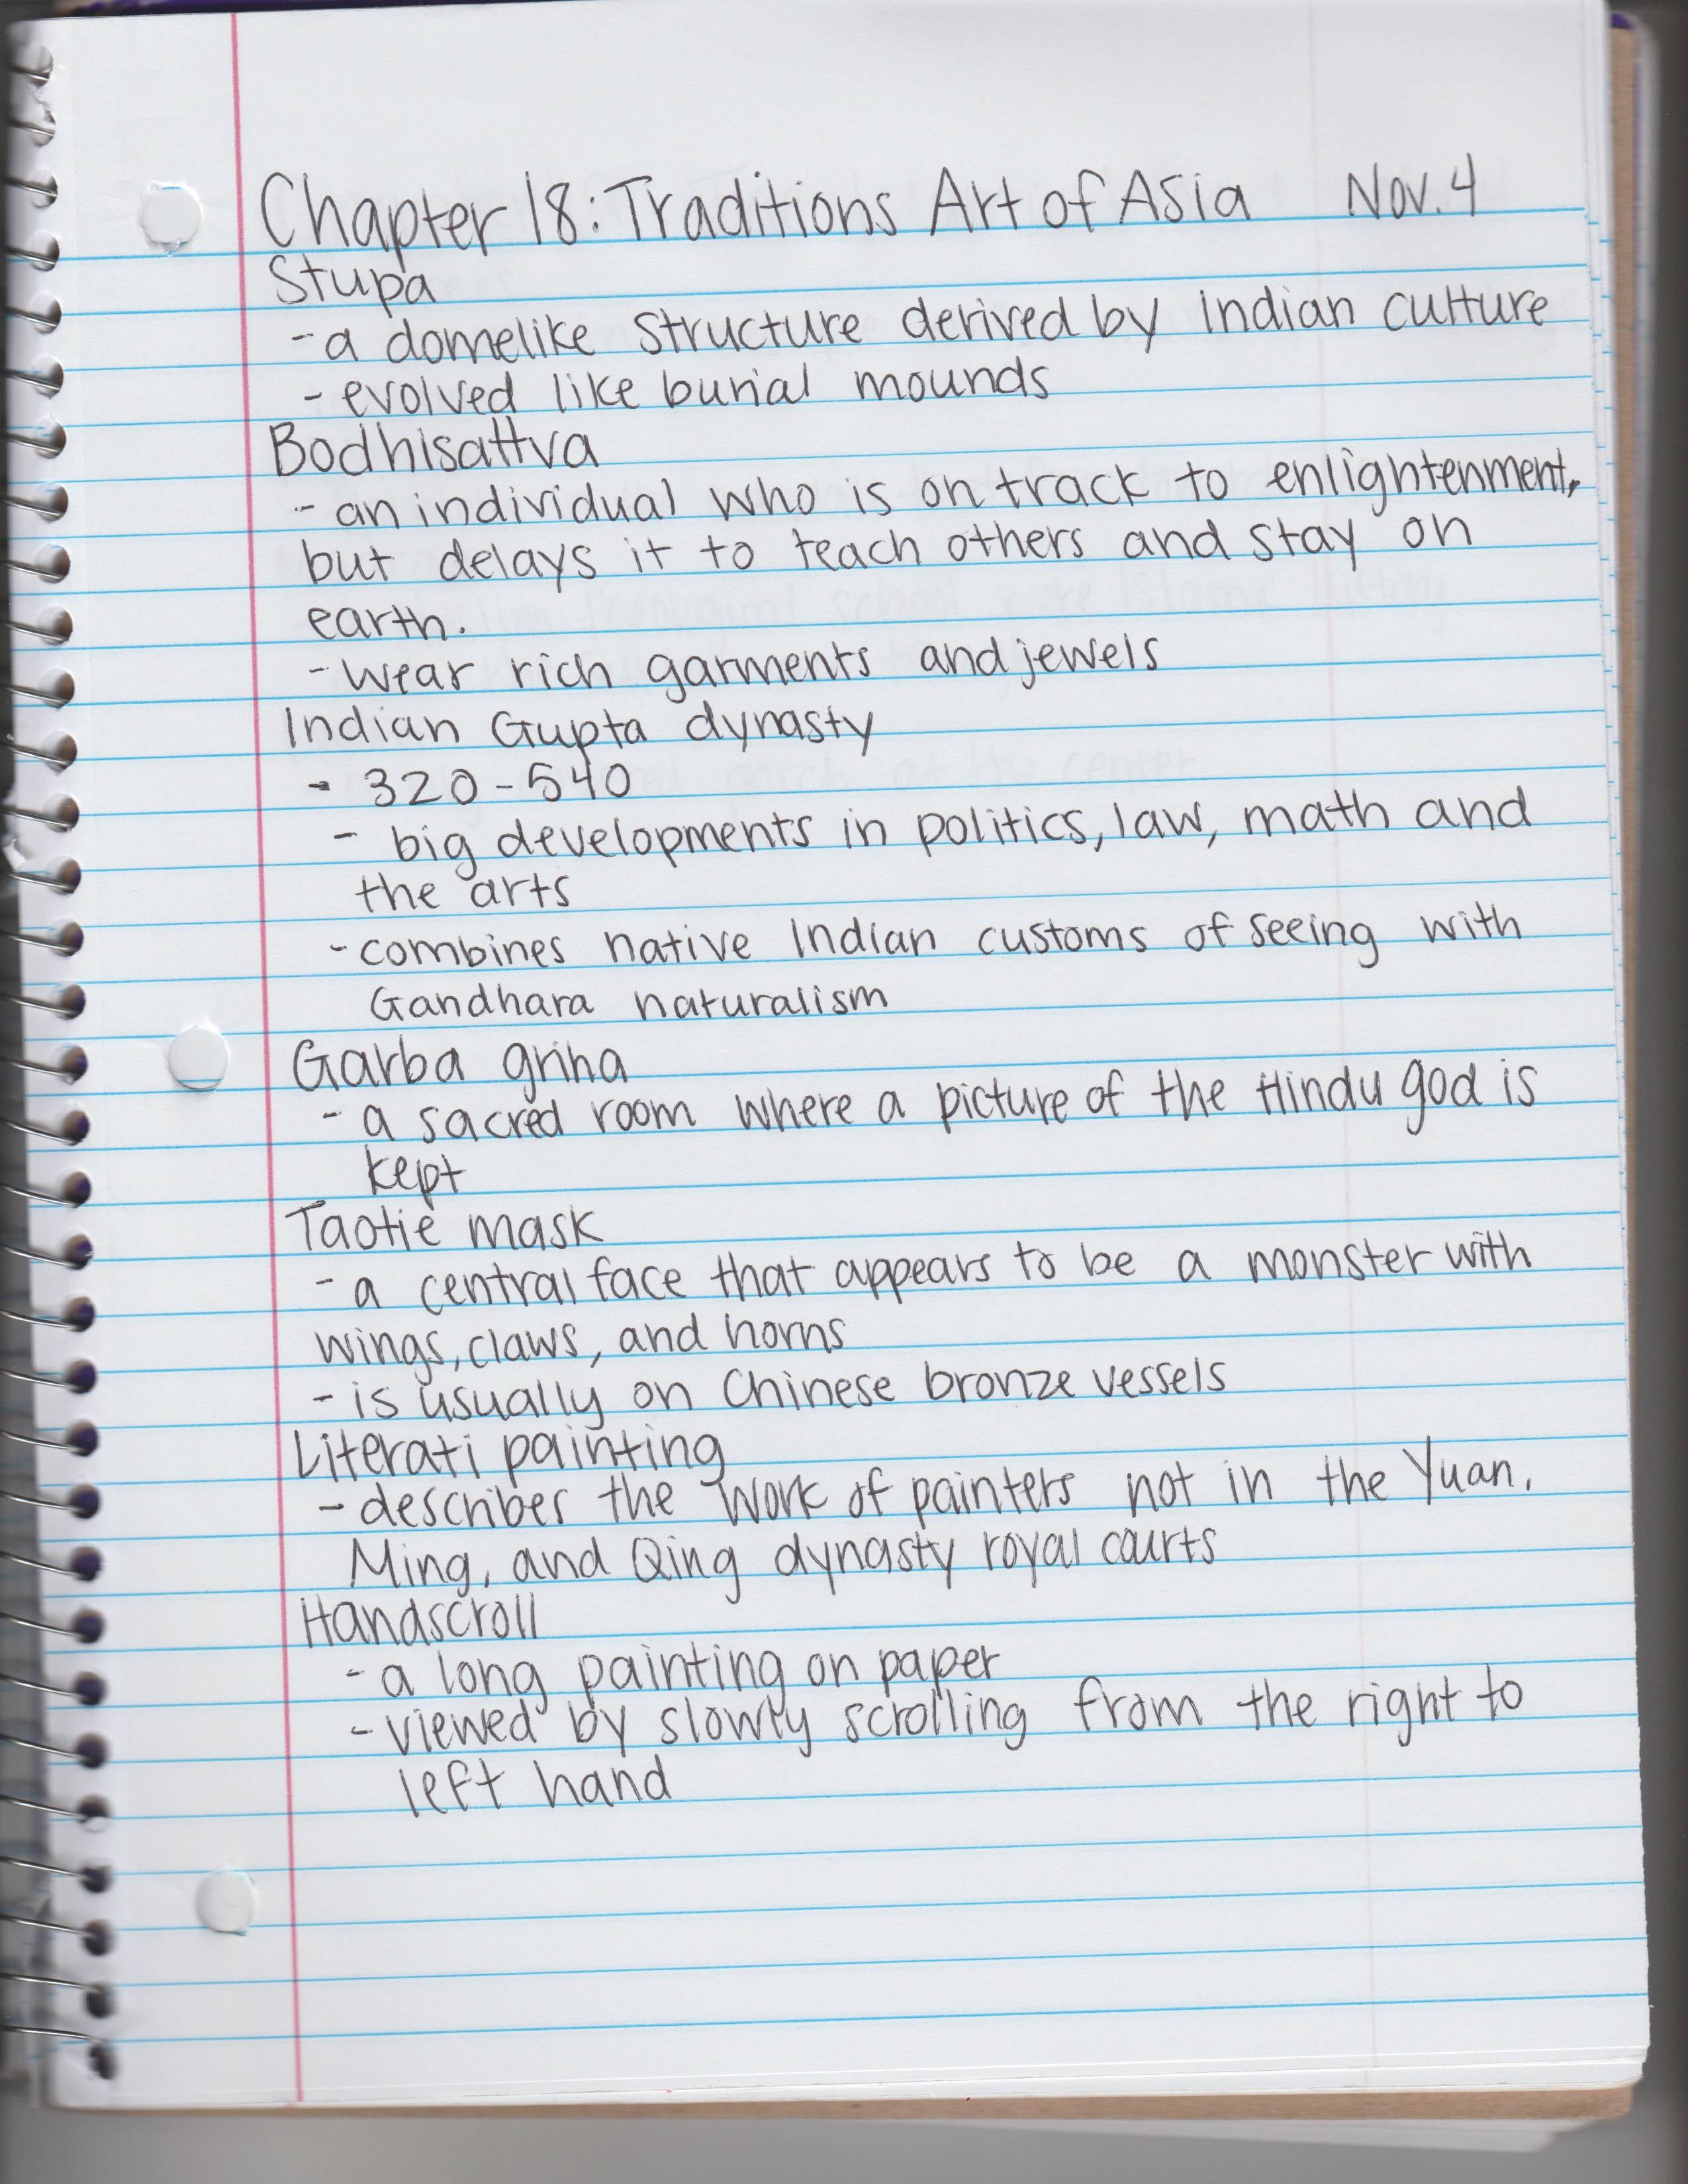 Chapter 18: Traditions Art of Asia Nov. 4
Stupa
- a domelike structure derived by Indian culture
- evolved like burial mounds
Bodhisattva
- an individual who is on track to enlightenment,
but delays it to teach others and stay on
earth.
- wear rich garments and jewels
Indian Gupta dynasty
- 320-540
- big developments in politics, law, math and
the arts
- combines native Indian customs of seeing with
Gandhara naturalism
Garba griha
- a sacred room where a picture of the Hindu god is
kept
Taotie mask
- a central face that appears to be a monster with
wings, claws, and horns
- is usually on Chinese bronze vessels
Literati painting
- describes the work of painters not in the Yuan,
Ming, and Qing dynasty royal courts
Handscroll
- a long painting on paper
- viewed by slowly scrolling from the right to
left hand